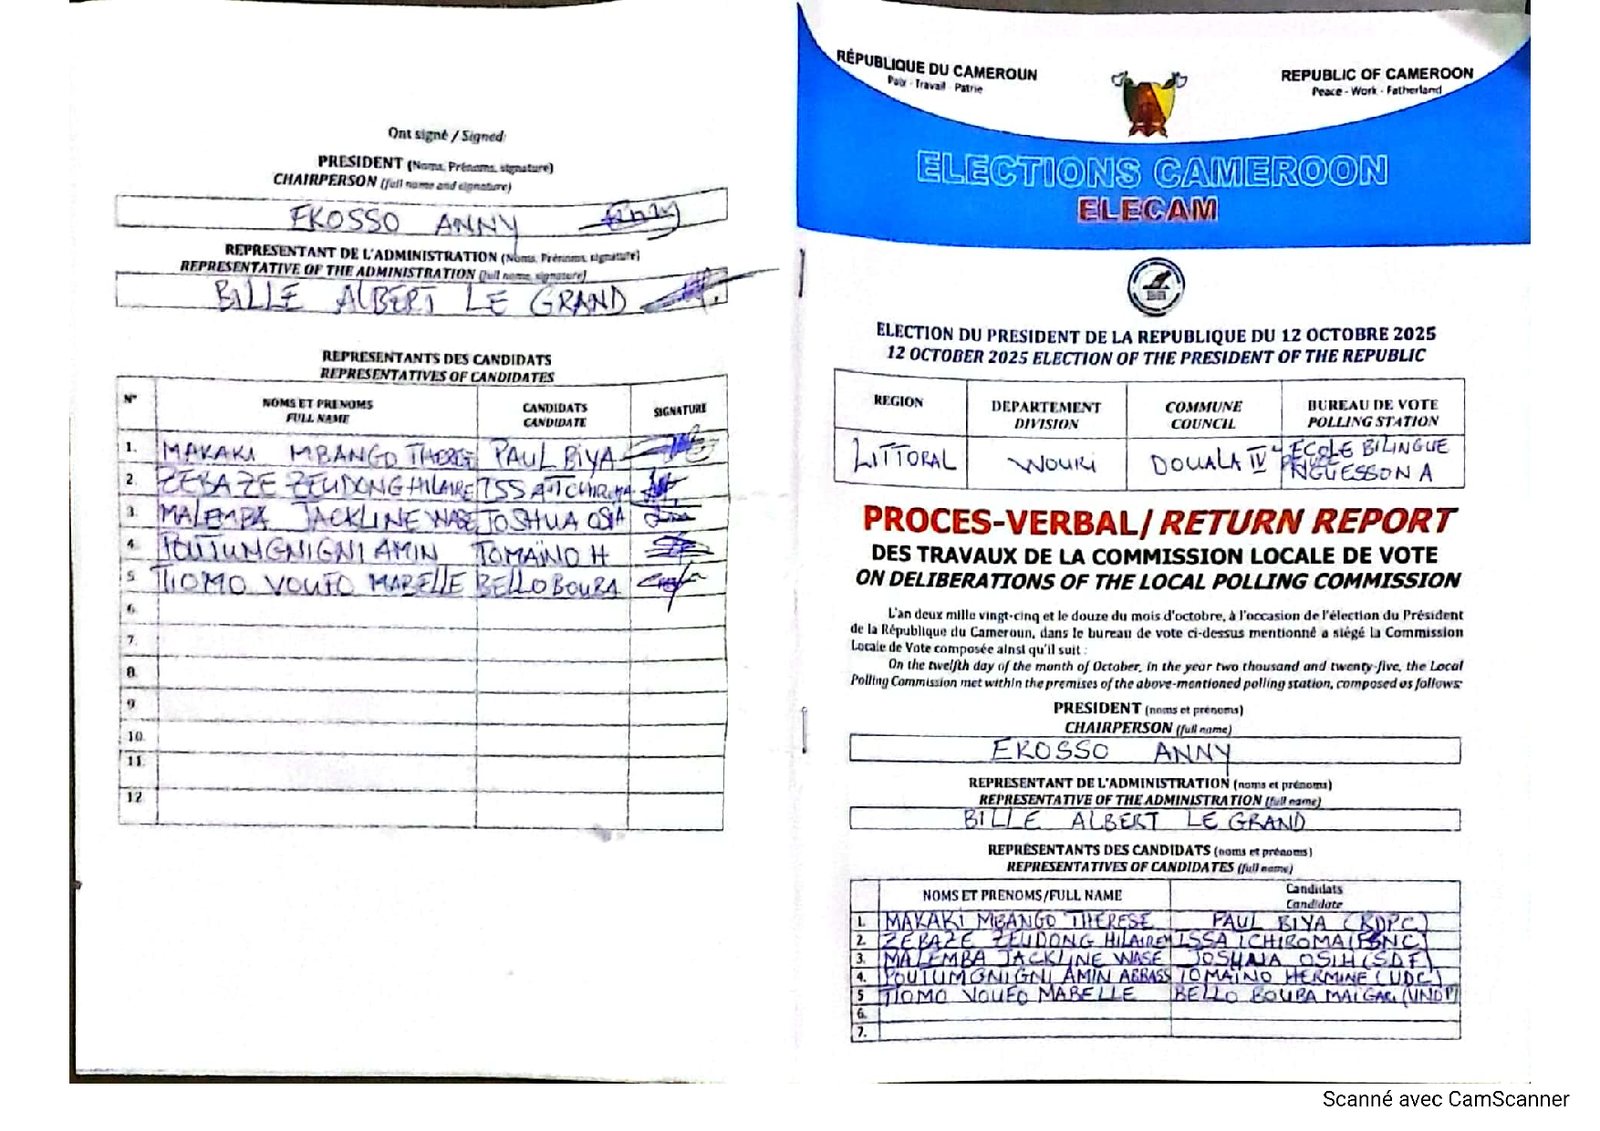 Ont signé / Signed:
PRESIDENT (Noms, Prénoms, signature)
CHAIRPERSON (full name and signature)
EKOSSO ANNY
REPRESENTANT DE L'ADMINISTRATION (Noms, Prénoms, signature)
REPRESENTATIVE OF THE ADMINISTRATION (full name, signature)
BILLE ALBERT LE GRAND
REPRESENTANTS DES CANDIDATS
REPRESENTATIVES OF CANDIDATES
N° NOMS ET PRENOMS FULL NAME CANDIDATS CANDIDATE SIGNATURE
1. MAKAKI MBANGO THERESE PAUL BIYA
2. ZEBAZE ZEUDONG HILAIRE ISSA TCHIROMA
3. MALEMBA JACKLINE WASE JOSHUA OSIH
4. POUTUMGNIGNI AMIN TOMAÏNO H
5. TIOMO VOUFO MABELLE BELLO BOUBA
6.
7.
8.
9
10.
11.
12
RÉPUBLIQUE DU CAMEROUN
Paix - Travail - Patrie
REPUBLIC OF CAMEROON
Peace - Work - Fatherland
ELECTIONS CAMEROON
ELECAM
ELECTION DU PRESIDENT DE LA REPUBLIQUE DU 12 OCTOBRE 2025
12 OCTOBER 2025 ELECTION OF THE PRESIDENT OF THE REPUBLIC
REGION DEPARTEMENT DIVISION COMMUNE COUNCIL BUREAU DE VOTE POLLING STATION
LITTORAL WOURI DOUALA IV ECOLE BILINGUE NGUESSON A
PROCES-VERBAL/ RETURN REPORT
DES TRAVAUX DE LA COMMISSION LOCALE DE VOTE
ON DELIBERATIONS OF THE LOCAL POLLING COMMISSION
L'an deux mille vingt-cinq et le douze du mois d'octobre, à l'occasion de l'élection du Président
de la République du Cameroun, dans le bureau de vote ci-dessus mentionné a siégé la Commission
Locale de Vote composée ainsi qu'il suit :
On the twelfth day of the month of October, in the year two thousand and twenty-five, the Local
Polling Commission met within the premises of the above-mentioned polling station, composed as follows:
PRESIDENT (noms et prénoms)
CHAIRPERSON (full name)
EKOSSO ANNY
REPRESENTANT DE L'ADMINISTRATION (noms et prénoms)
REPRESENTATIVE OF THE ADMINISTRATION (full name)
BILLE ALBERT LE GRAND
REPRÉSENTANTS DES CANDIDATS (noms et prénoms)
REPRESENTATIVES OF CANDIDATES (full name)
NOMS ET PRENOMS/FULL NAME Candidats Candidate
1. MAKAKI MBANGO THERESE PAUL BIYA (RDPC)
2. ZEBAZE ZEUDONG HILAIRE ISSA TCHIROMA (FSNC)
3. MALEMBA JACKLINE WASE JOSHUA OSIH (SDF)
4. POUTUMGNIGNI AMIN ABBASS TOMAÏNO HERMINE (UDC)
5 TIOMO VOUFO MABELLE BELLO BOUBA MAIGARI (UNDP)
6.
7.
Scanné avec CamScanner